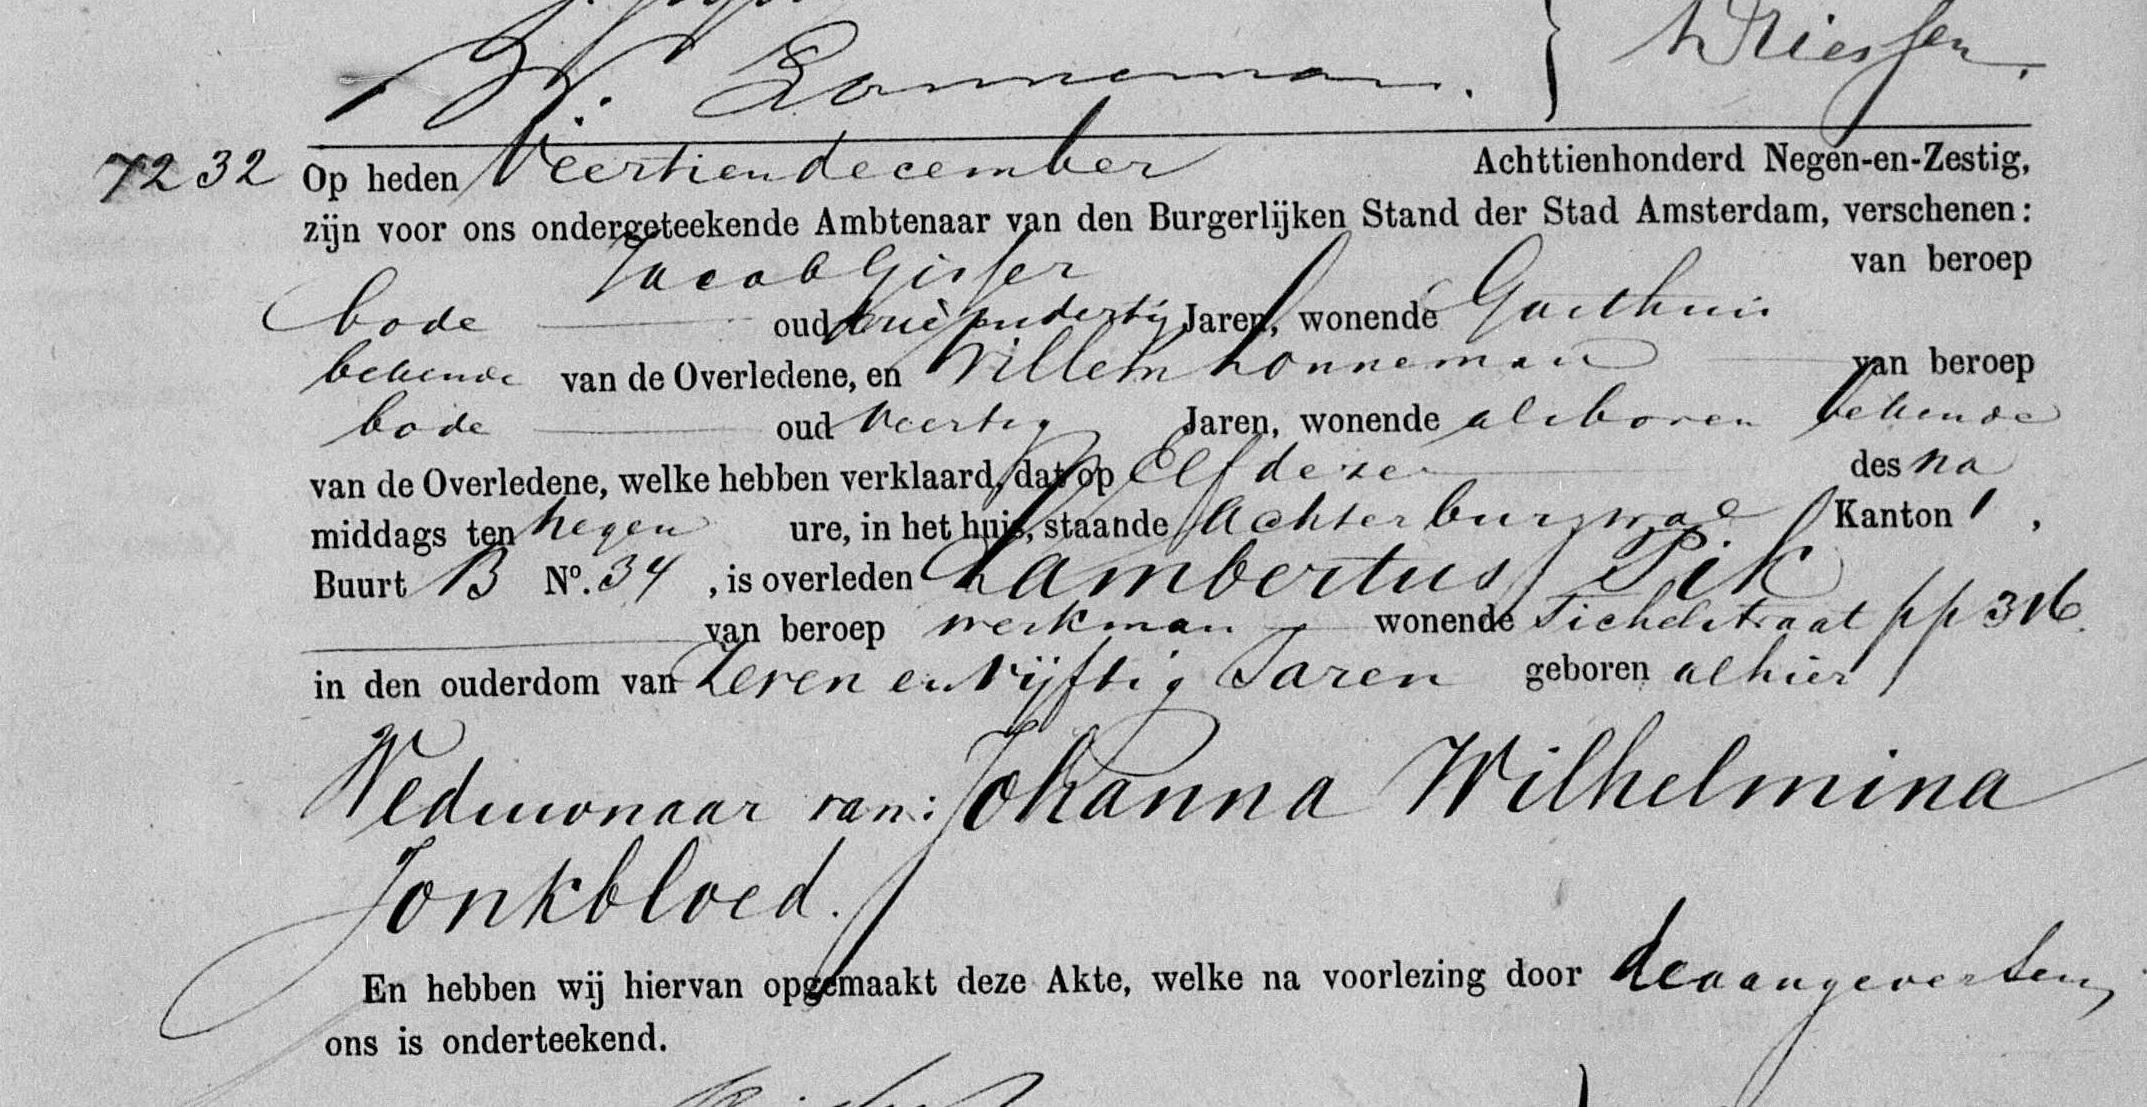 W. Lonneman. } Driessen.
7232 Op heden Veertien december Achttienhonderd Negen-en-Zestig,
zijn voor ons ondergeteekende Ambtenaar van den Burgerlijken Stand der Stad Amsterdam, verschenen:
Jacob Gisser van beroep
bode oud drieëndertig Jaren, wonende Gasthuis
bekende van de Overledene, en Willem Lonneman van beroep
bode oud Veertig Jaren, wonende alsboven bekende
van de Overledene, welke hebben verklaard, dat op Elf dezer des na
middags ten negen ure, in het huis, staande Achterburgwal Kanton 1,
Buurt B No. 34, is overleden Lambertus Pik
van beroep werkman wonende Tichelstraat pp 316
in den ouderdom van Zeven en Vijftig Jaren geboren alhier
Weduwnaar van: Johanna Wilhelmina
Jonkbloed.
En hebben wij hiervan opgemaakt deze Akte, welke na voorlezing door de aangevers en
ons is onderteekend.